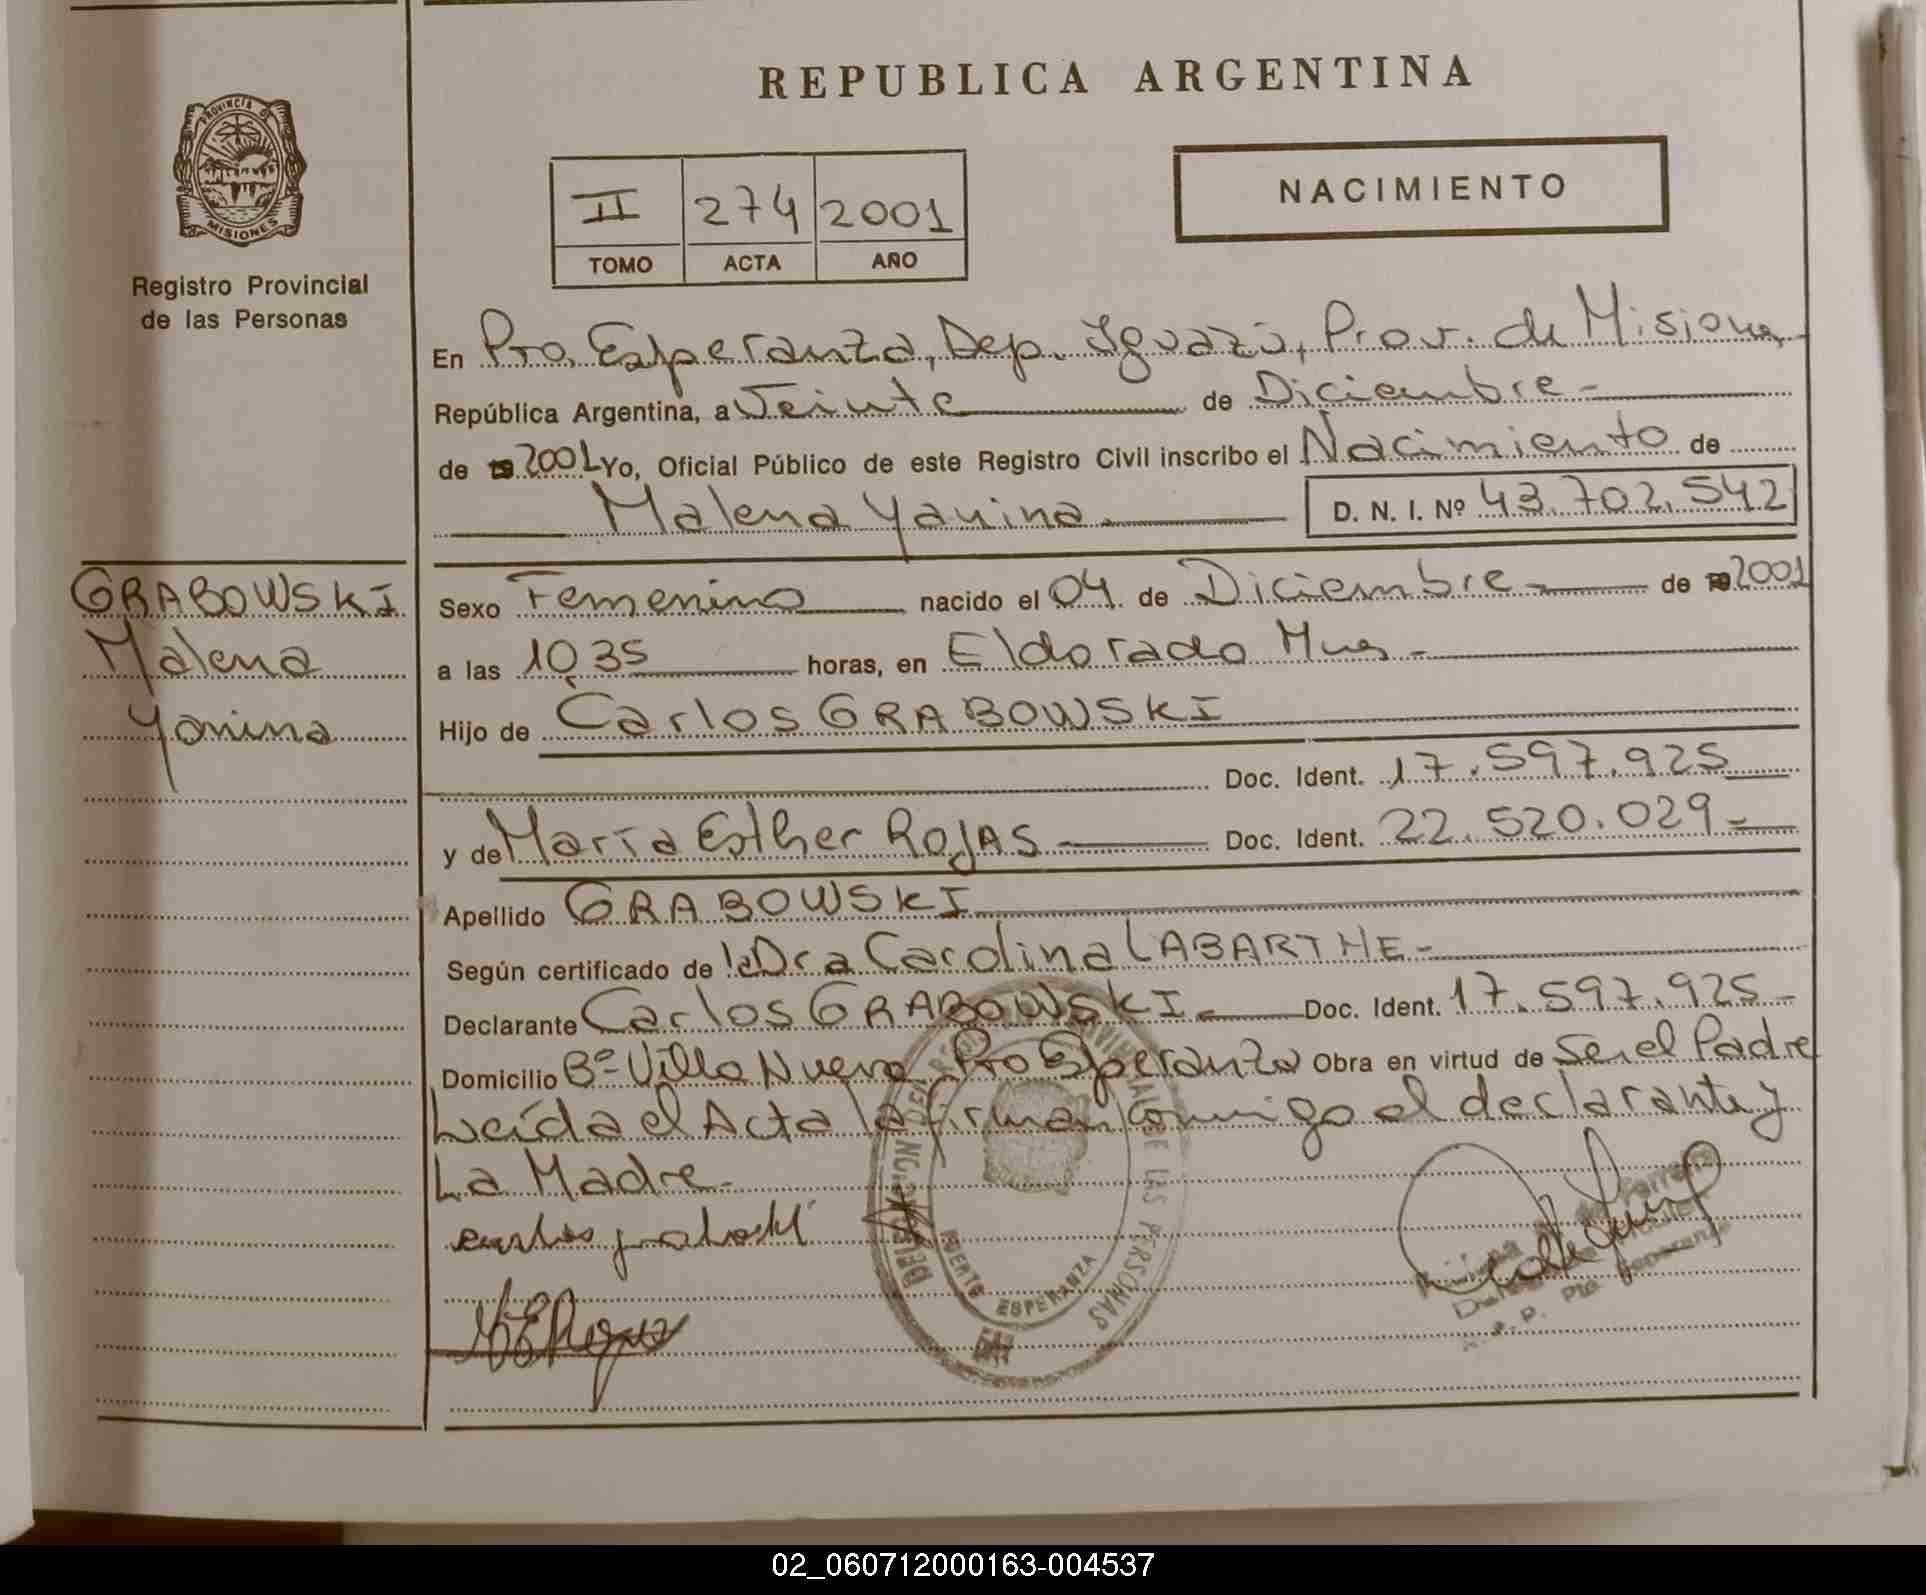 REPUBLICA ARGENTINA
PROVINCIA DE
MISIONES
Registro Provincial
de las Personas
II 274 2001
TOMO ACTA AÑO
NACIMIENTO
En Pto. Esperanza, Dep. Iguazú, Prov. de Misiones
República Argentina, a Veinte de Diciembre -
de 19 2001 Yo, Oficial Público de este Registro Civil inscribo el Nacimiento de
Malena Yanina. D. N. I. Nº 43.702.542
GRABOWSKI
Malena
Yanina
Sexo Femenino nacido el 04 de Diciembre - de 19 2001
a las 10,35 horas, en Eldorado Mnes -
Hijo de Carlos GRABOWSKI
Doc. Ident. 17.597.925
y de María Esther ROJAS Doc. Ident. 22.520.029 -
Apellido GRABOWSKI
Según certificado de la Dra Carolina LABARTHE -
Declarante Carlos GRABOWSKI. Doc. Ident. 17.597.925 -
Domicilio Bº Villa Nueva Pto Esperanza Obra en virtud de Ser el Padre
Leída el Acta la firman conmigo el declarante y
La Madre.
DE LAS PERSONAS
PUERTO ESPERANZA
02_060712000163-004537